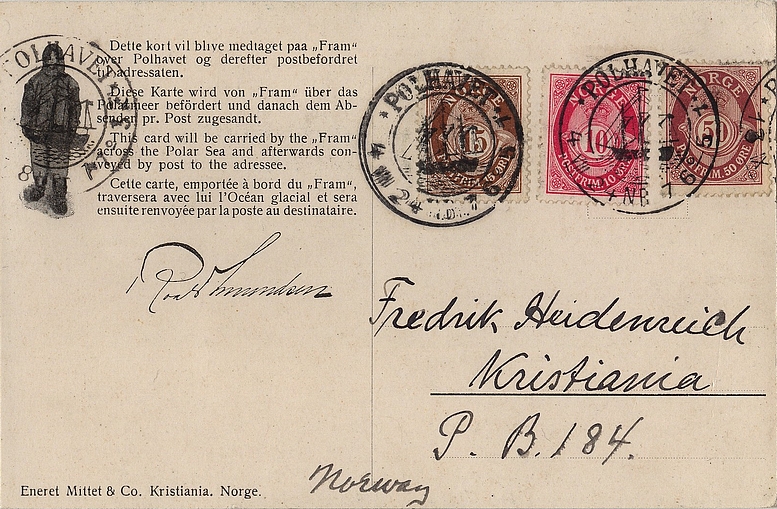 Dette kort vil blive medtaget paa „Fram“
over Polhavet og derefter postbefordret
til adressaten.
Diese Karte wird von „Fram“ über das
Polarmeer befördert und danach dem Ab-
senden pr. Post zugesandt.
This card will be carried by the „Fram“
across the Polar Sea and afterwards con-
veyed by post to the adressee.
Cette carte, emportée à bord du „Fram“,
traversera avec lui l'Océan glacial et sera
ensuite renvoyée par la poste au destinataire.
POLHAVET
POLHAVET
POLHAVET
NORGE
15
10
POSTFRIM 10 ØRE
NORGE
POSTFRIM. 50 ØRE
Roald Amundsen
Fredrik Heidenreich
Kristiania
P. B. 184.
Norway
Eneret Mittet & Co. Kristiania. Norge.